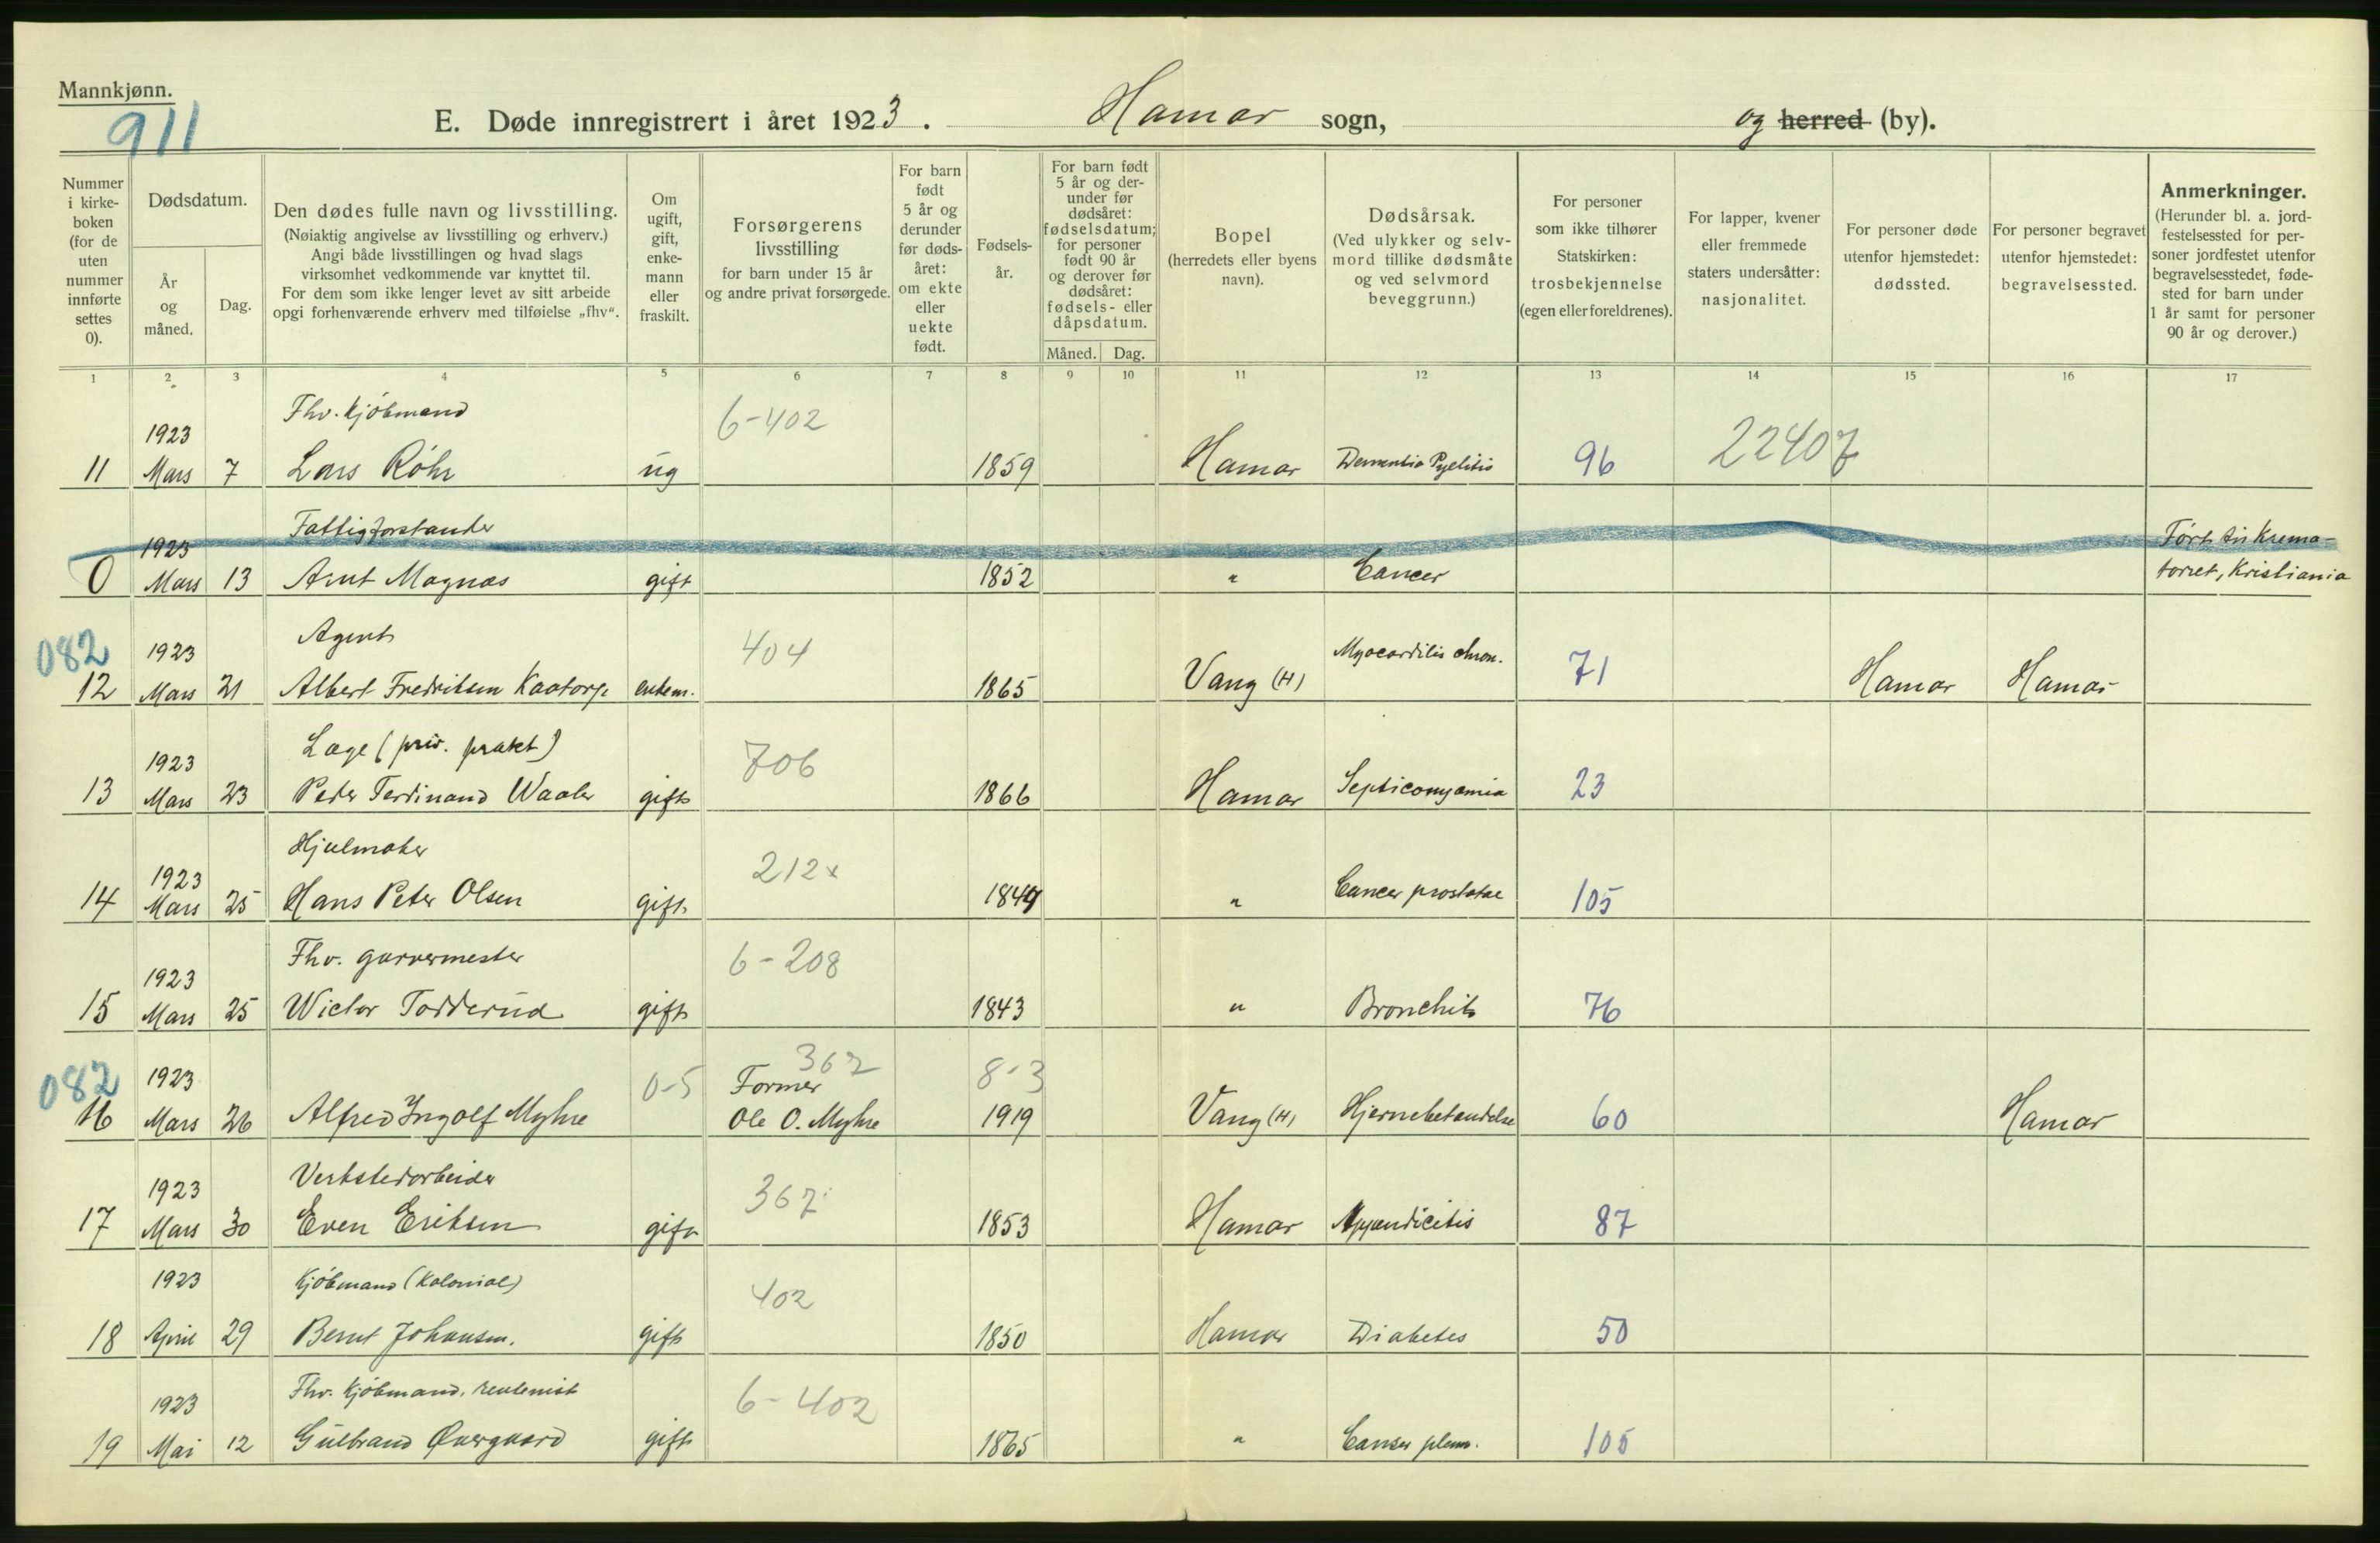 Mannkjønn.
911
E. Døde innregistrert i året 1923. Hamar sogn, og herred (by).
Nummer i kirkeboken (for de uten nummer innførte settes 0).
Dødsdatum.
År og måned.
Dag.
Den dødes fulle navn og livsstilling.
(Nøiaktig angivelse av livsstilling og erhverv.)
Angi både livsstillingen og hvad slags
virksomhet vedkommende var knyttet til.
For dem som ikke lenger levet av sitt arbeide
opgi forhenværende erhverv med tilføielse „fhv“.
Om ugift, gift, enkemann eller fraskilt.
Forsørgerens livsstilling
for barn under 15 år
og andre privat forsørgede.
For barn født 5 år og derunder før dødsåret: om ekte eller uekte født.
Fødselsår.
For barn født 5 år og derunder før dødsåret: fødselsdatum; for personer født 90 år og derover før dødsåret: fødsels- eller dåpsdatum.
Måned. Dag.
Bopel
(herredets eller byens navn).
Dødsårsak.
(Ved ulykker og selvmord tillike dødsmåte og ved selvmord beveggrunn.)
For personer som ikke tilhører Statskirken: trosbekjennelse (egen eller foreldrenes).
For lapper, kvener eller fremmede staters undersåtter: nasjonalitet.
For personer døde utenfor hjemstedet: dødssted.
For personer begravet utenfor hjemstedet: begravelsessted.
Anmerkninger.
(Herunder bl. a. jordfestelsessted for personer jordfestet utenfor begravelsesstedet, fødested for barn under 1 år samt for personer 90 år og derover.)
1 2 3 4 5 6 7 8 9 10 11 12 13 14 15 16 17
Fhv. Kjöbmand 6-402
1923
11 Mars 7 Lars Röhr ug 1859 Hamar Dementia Pyelitis 96 22407
Fattigforstander
1923 Ført til Krema-
0 Mars 13 Arnt Magnæs gift 1852 " Cancer toriet, Kristiania
082 1923 Agent 404
12 Mars 21 Albert Fredriksen Kaatorp enkem. 1865 Vang (H) Myocarditis chron. 71 Hamar Hamar
Læge (priv. prakt) 706
1923
13 Mars 23 Peder Ferdinand Waaler gift 1866 Hamar Septicopyæmia 23
Hjulmaker 212x
1923
14 Mars 25 Hans Peter Olsen gift 1849 " Cancer prostatae 105
Fhv. garvermester 6-208
1923
15 Mars 25 Wictor Todderud gift 1843 " Bronchit 76
082 1923 0-5 Former 362 8-3
16 Mars 26 Alfred Ingolf Myhre Ole O. Myhre 1919 Vang (H) Hjernebetændelse 60 Hamar
Verkstedarbeider 367
1923
17 Mars 30 Even Eriksen gift 1853 Hamar Appendicitis 87
1923 Kjöbmand (Kolonial) 402
18 April 29 Bernt Johansen. gift 1850 Hamar Diabetes 50
Fhv. Kjöbmand, rentenist 6-402
1923
19 Mai 12 Gulbrand Övergaard gift 1865 " Cancer 105